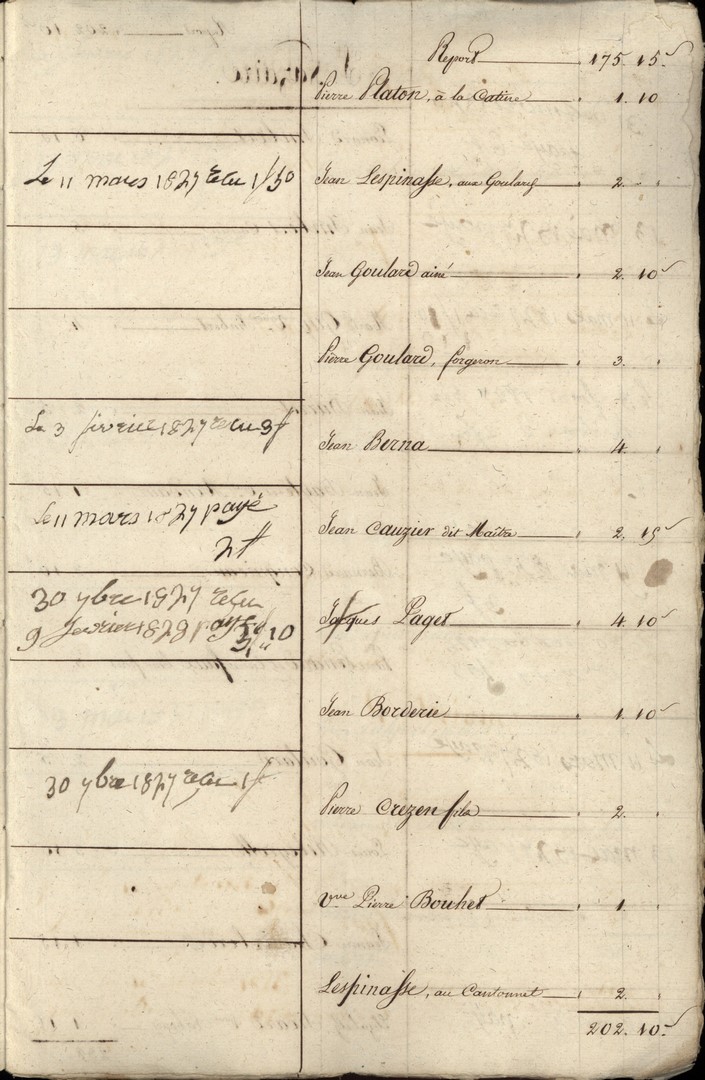 Report 175. 15
Pierre Platon, à la Catine 1. 10
Le 11 mars 1827 recu 1f 50
Jean Lespinasse, aux Goulard 2.
Jean Goulard ainé 2. 10
Pierre Goulard, forgeron 3.
Le 3 fevrier 1827 recu 3f
Jean Berna 4.
le 11 mars 1827 payé
2f
Jean Cauzier dit Maître 2. 15
30 ybre 1827 recu
9 fevrier 1828 payé 10
Jacques Paget 4. 10
Jean Borderie 1. 10
30 ybre 1827 recu 1f
Pierre Crezen fils 2.
Vve Pierre Bouhet 1.
Lespinasse, au Cantonnet 2.
202. 10